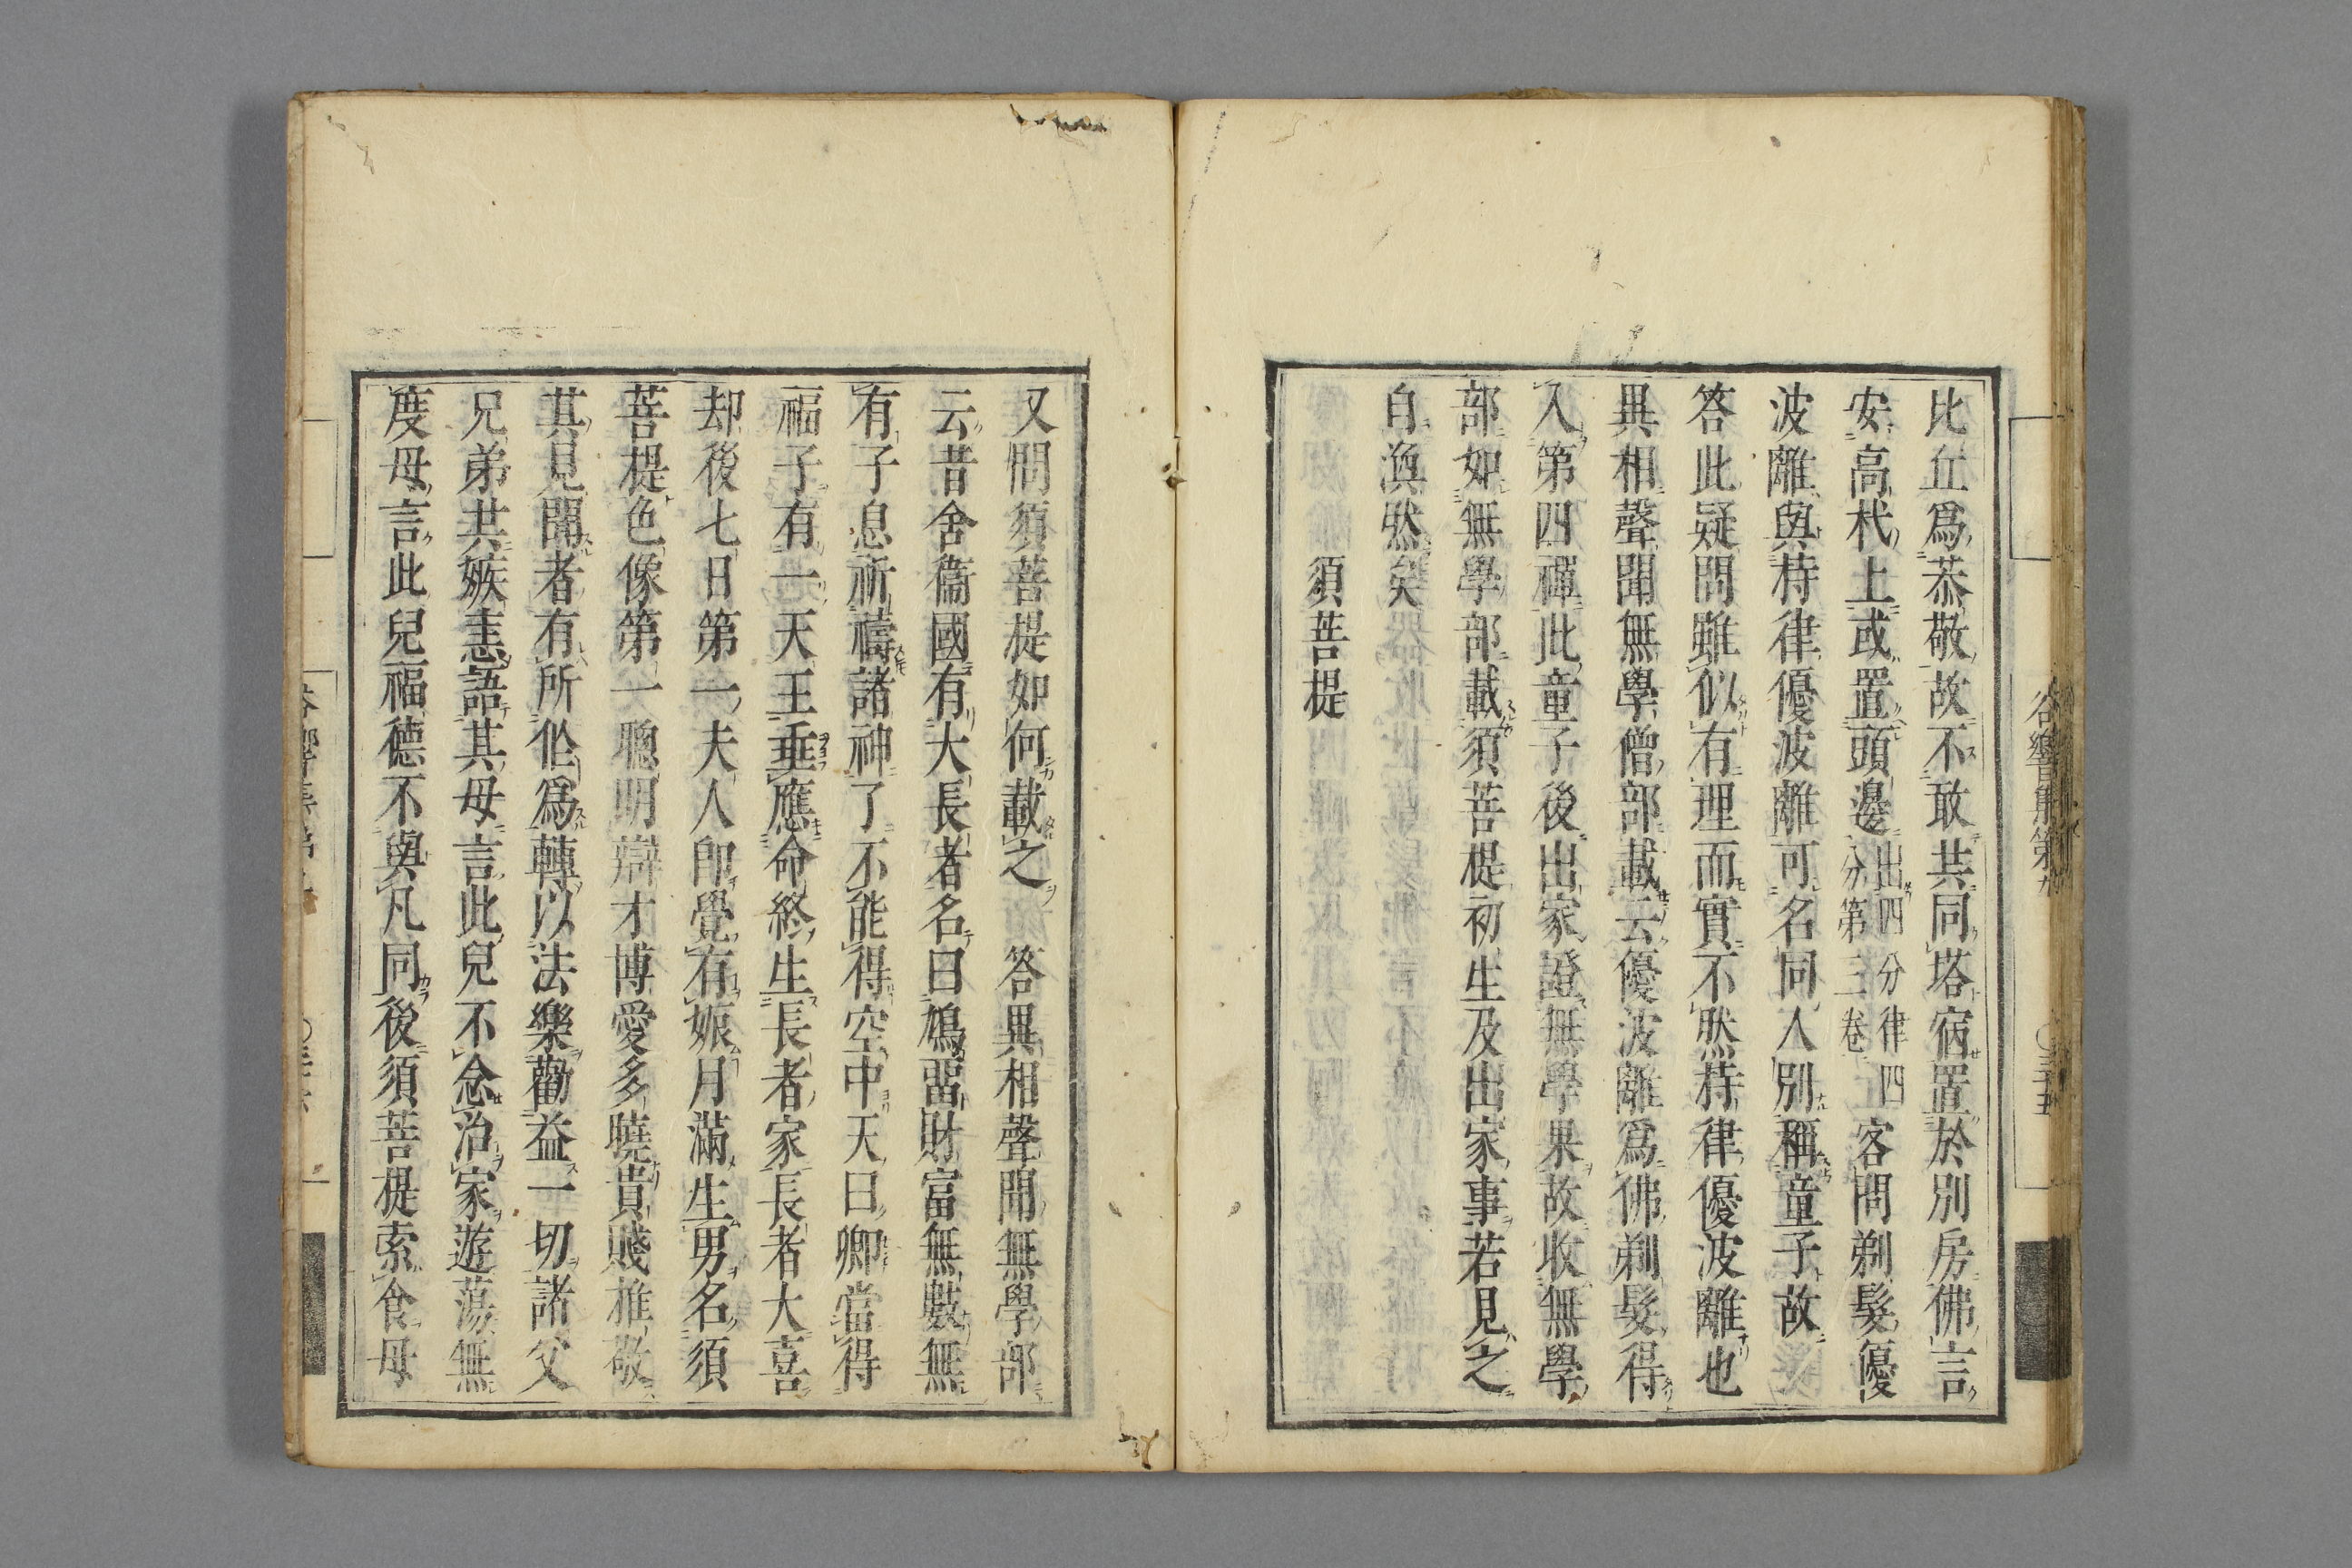 比丘爲恭敬故不敢共同塔宿置於別房佛言
安高杙上或置頭邊出四分律四分第三卷客問剃髮優
波離與持律優波離可名同人別稱童子故
答此疑問雖似有理而實不然持律優波離也
異相聲聞無學僧部載云優波離爲佛剃髮得
入第四禪此童子後出家證無學果故收無學
部如無學部載須菩提初生及出家事若見之
自渙然矣
須菩提
又問須菩提如何載之 答異相聲聞無學部
云昔舍衞國有大長者名曰鳩留財富無數無
有子息祈禱諸神了不能得空中天曰卿當得
福子有一天王垂應命終生長者家長者大喜
却後七日第一夫人卽覺有娠月滿生男名須
菩提色像第一聰明辯才博愛多曉貴賤推敬
其見聞者有所作爲轉以法樂勸益一切諸父
兄弟共嫉恚語其母言此兒不念治家遊蕩無
度母言此兒福德不與凡同後須菩提索食母